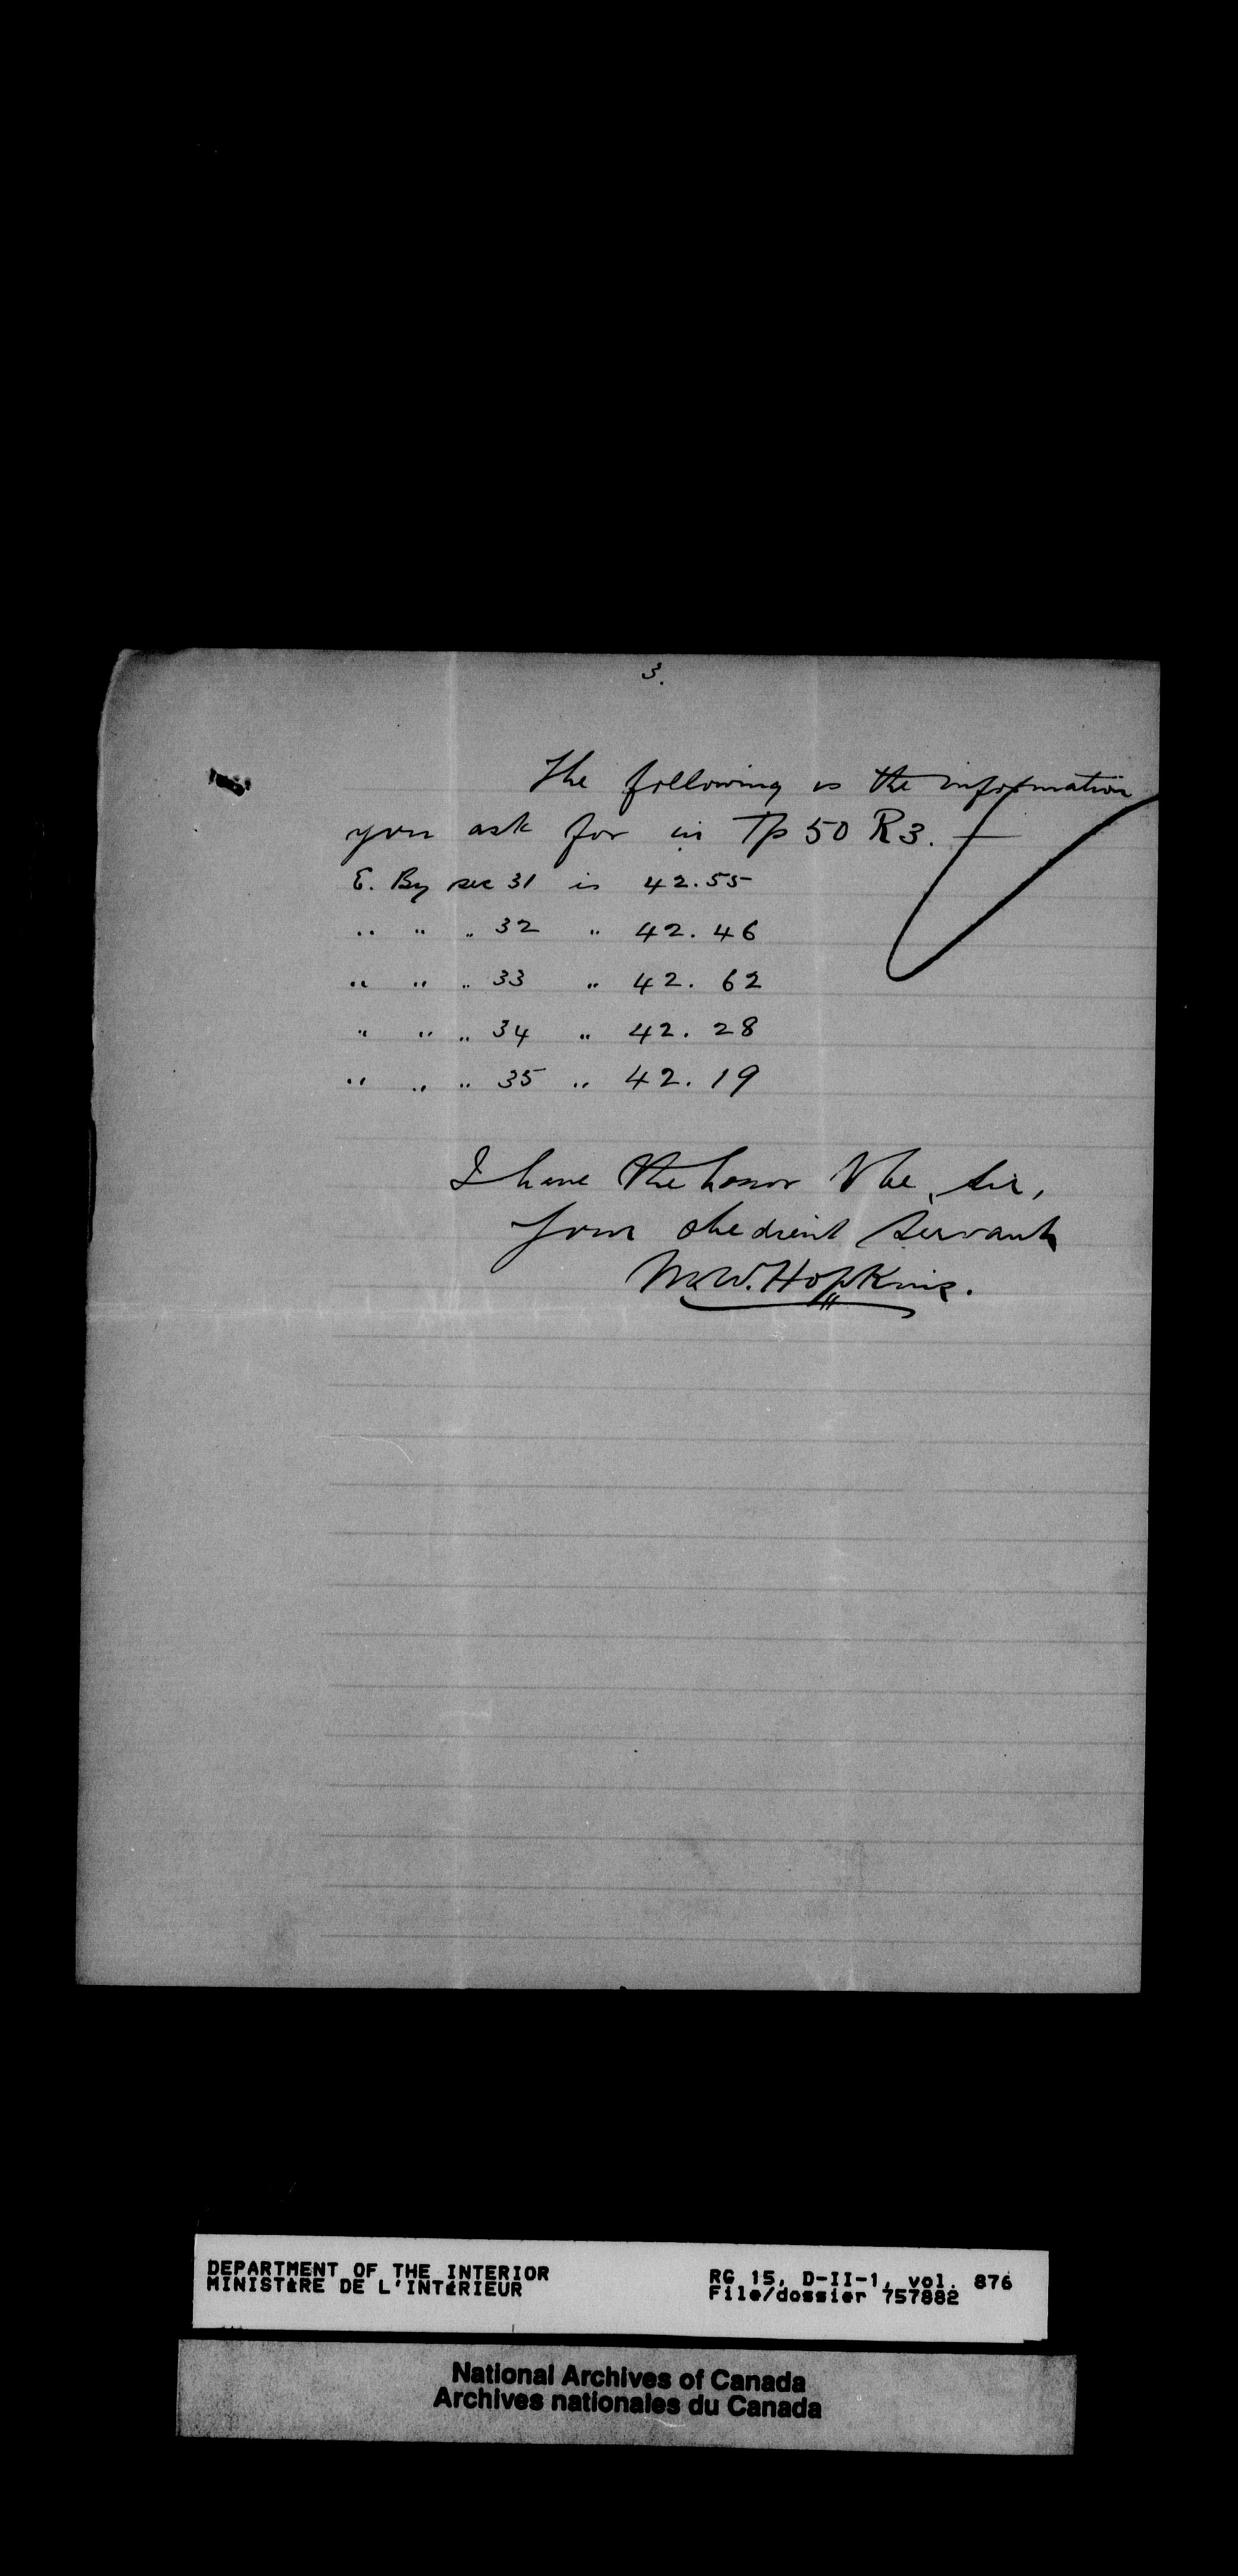 3.
The following is the information
you ask for in Tp 50 R3. —
E. By sec 31 is 42.55
" " " 32 " 42.46
" " " 33 " 42.62
" " " 34 " 42.28
" " " 35 " 42.19
I have the honor to be, Sir,
Your obedient servant
M.W. Hopkins.
DEPARTMENT OF THE INTERIOR
MINISTÈRE DE L'INTÉRIEUR
RG 15, D-II-1, vol. 876
File/dossier 757882
National Archives of Canada
Archives nationales du Canada